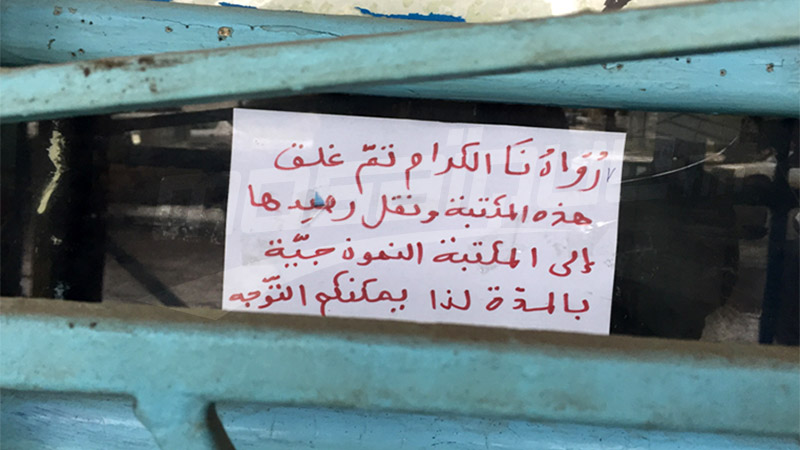 رُوّادُنَا الكرام تمّ غلق
هذه المكتبة ونقل رصيدها
إلى المكتبة النموذجيّة
بالمدّة لذا يمكنكم التّوجه